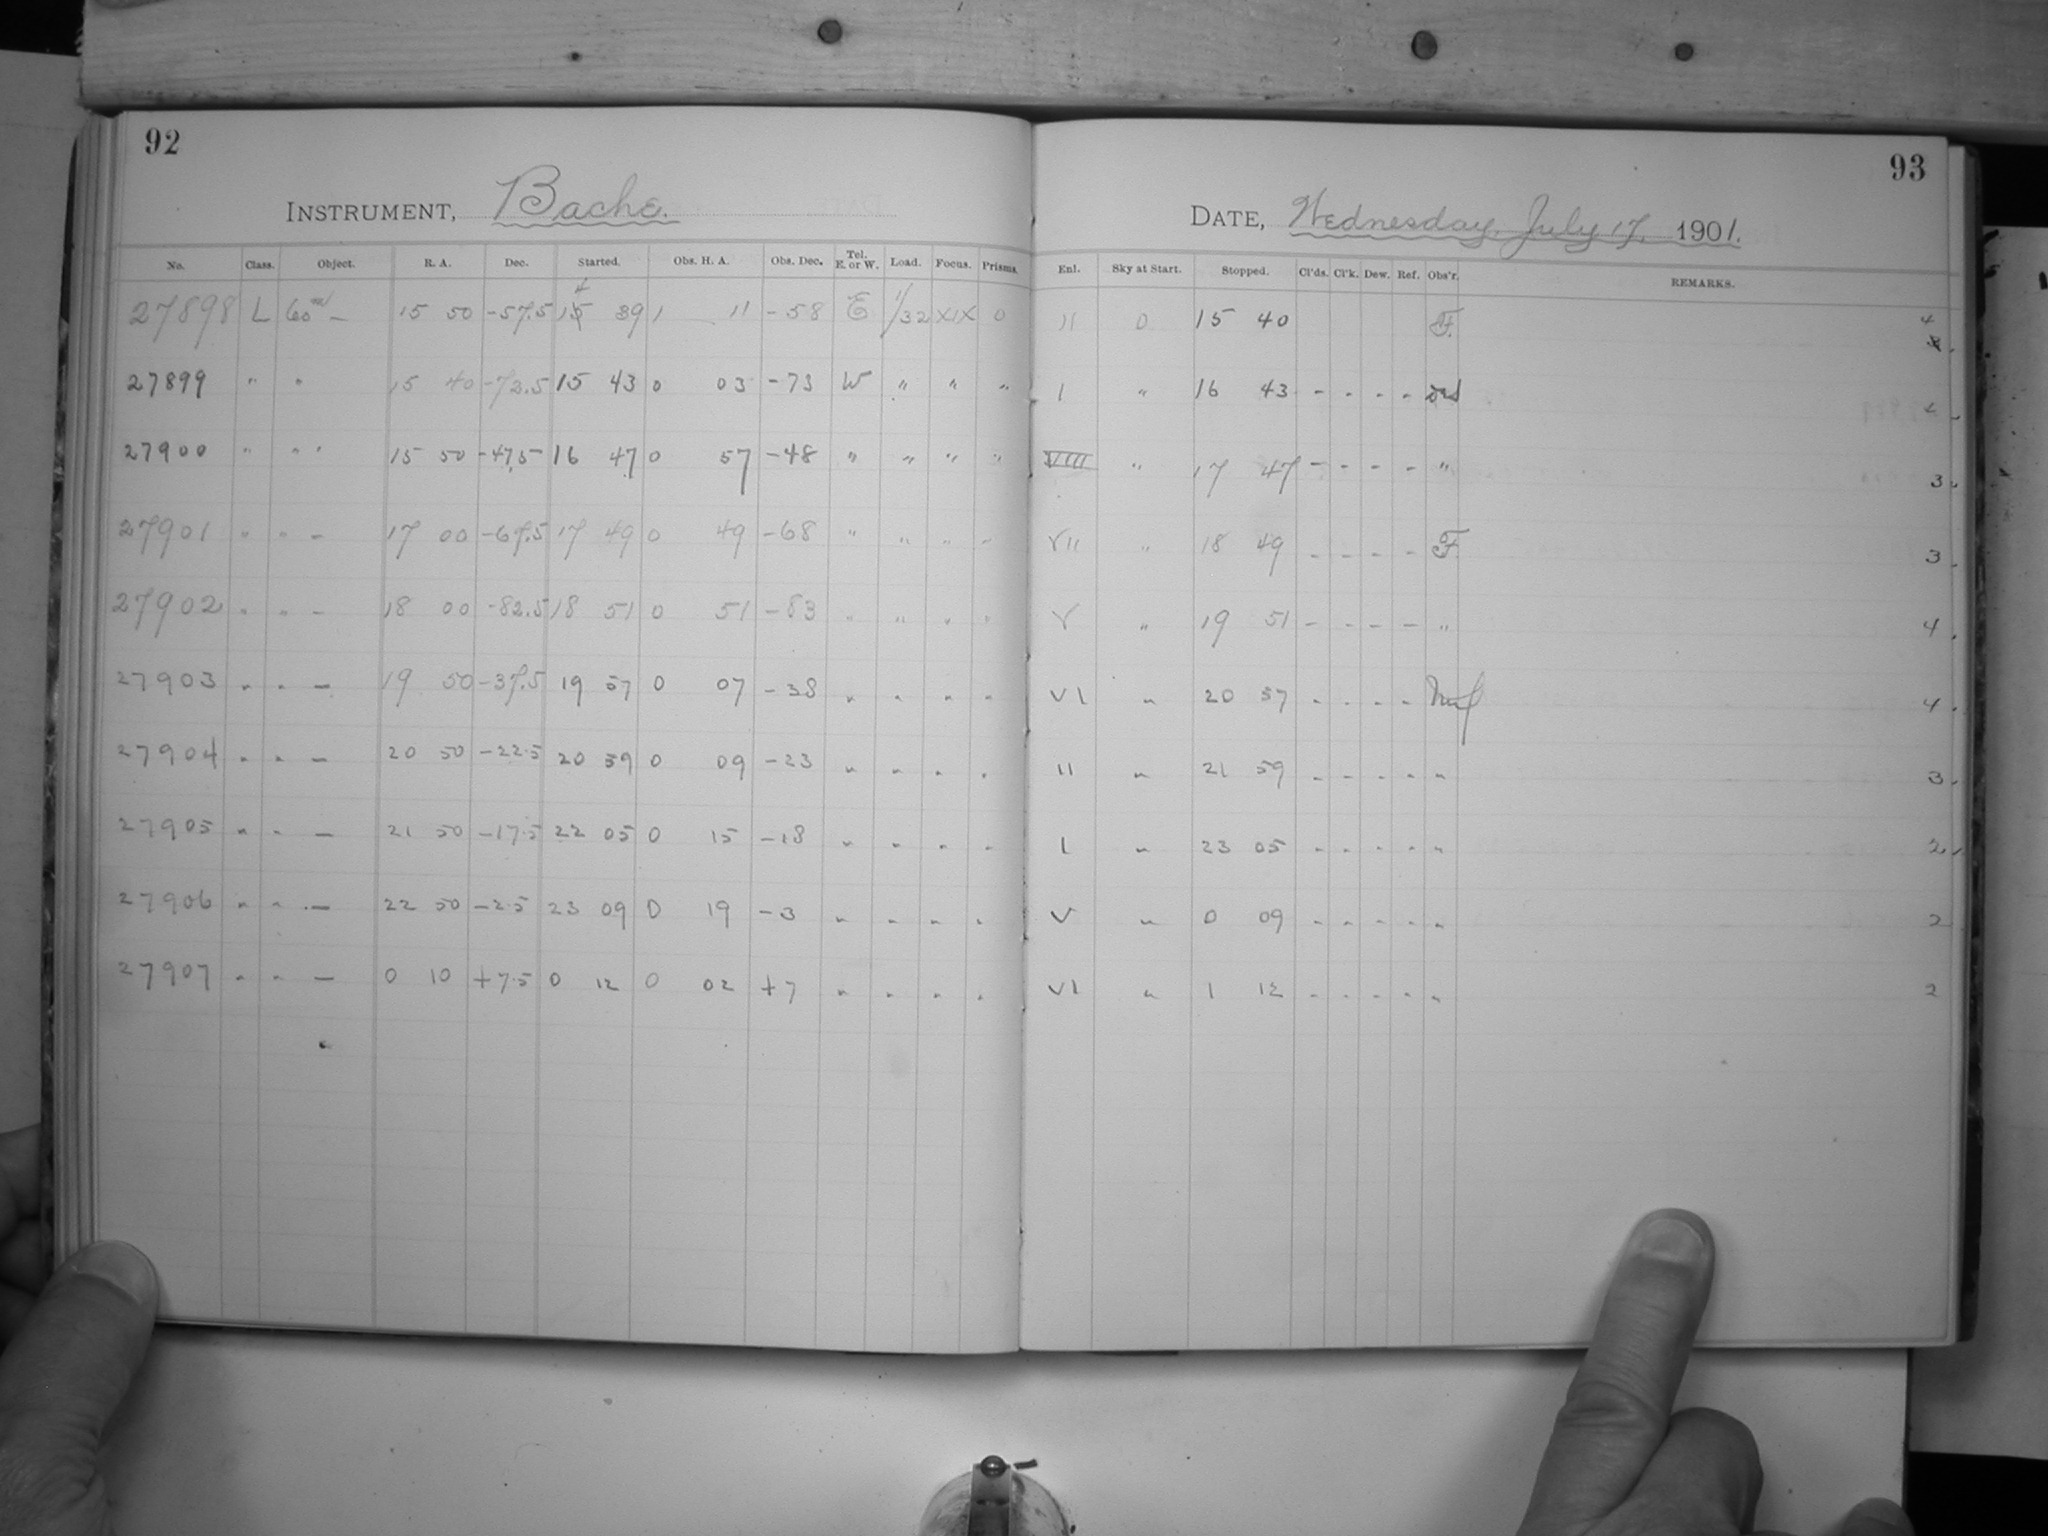 92
93
INSTRUMENT, Bache.
DATE, Wednesday, July 17, 1901.
No. Class. Object. R. A. Dec. Started. Obs. H. A. Obs. Dec. Tel. E. or W. Load. Focus. Prisms. Enl. Sky at Start. Stopped. Cl'ds. Cl'k. Dew. Ref. Obs'r. REMARKS.
27898 L 60m — 15 50 -57.5 15 39 1 11 -58 E 1/32 XIX 0 II 0 15 40 F. 4
27899 " " 15 40 -72.5 15 43 0 03 -73 W " " " I " 16 43 - - - -
27900 " " ' 15 50 -47.5 16 47 0 57 -48 " " " " VIII " 17 47 - - - - " 3.
27901 " " - 17 00 -67.5 17 49 0 49 -68 " " " " VII " 18 49 - - - - F. 3.
27902 " " - 18 00 -82.5 18 51 0 51 -83 " " " " V " 19 51 - - - - " 4.
27903 " " — 19 50 -37.5 19 57 0 07 -38 " " " " VI " 20 57 - - - - 4.
27904 " " — 20 50 -22.5 20 59 0 09 -23 " " " " II " 21 59 - - - - " 3.
27905 " " — 21 50 -17.5 22 05 0 15 -18 " " " " I " 23 05 - - - - " 2.
27906 " " — 22 50 -2.5 23 09 0 19 -3 " " " " V " 0 09 - - - - " 2
27907 " " — 0 10 +7.5 0 12 0 02 +7 " " " " VI " 1 12 - - - - " 2